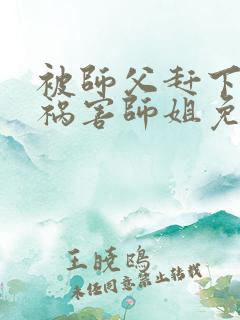 被師父赶下
祸害師姐免
王晓鸥
未经同意禁止转载